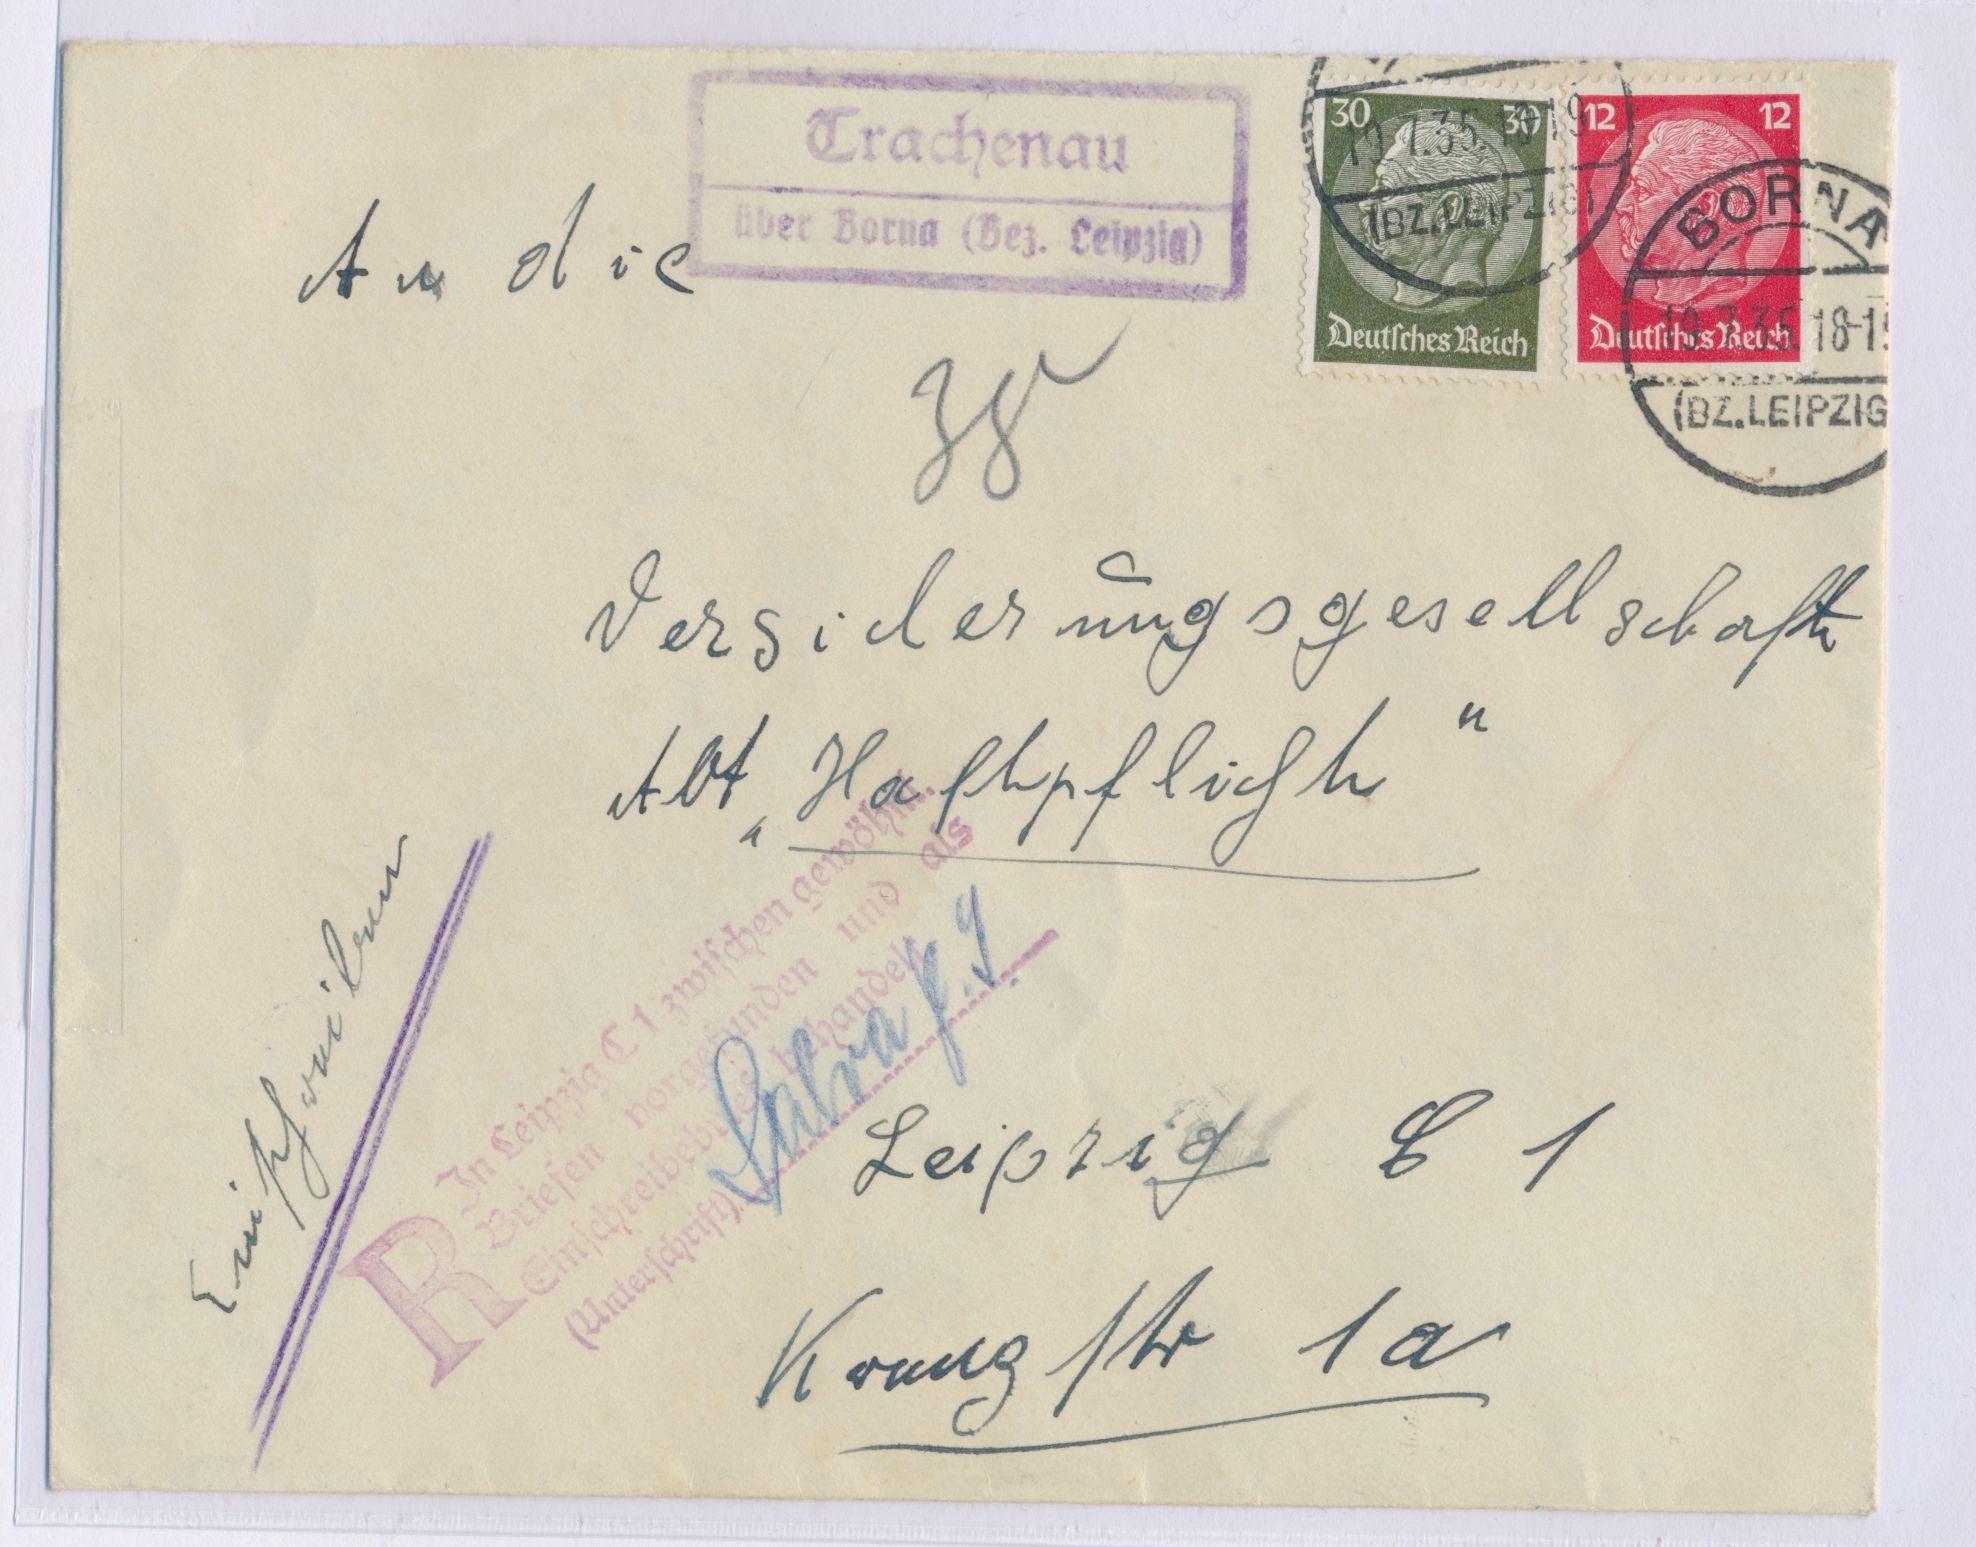 Trachenau
über Borna (Bez. Leipzig)
30 30
Deutsches Reich
12 12
Deutsches Reich
19.7.35.18-19
(BZ. LEIPZIG)
BORNA
19.7.35.18-19
(BZ. LEIPZIG
An die
38
Versicherungsgesellschaft
Abt „Haftpflicht"
Einschreiben
R
In Leipzig C 1 zwischen gewöhnl.
Briefen vorgefunden und als
Einschreibebrief behandelt
(Unterschrift)
Leipzig C 1
1a